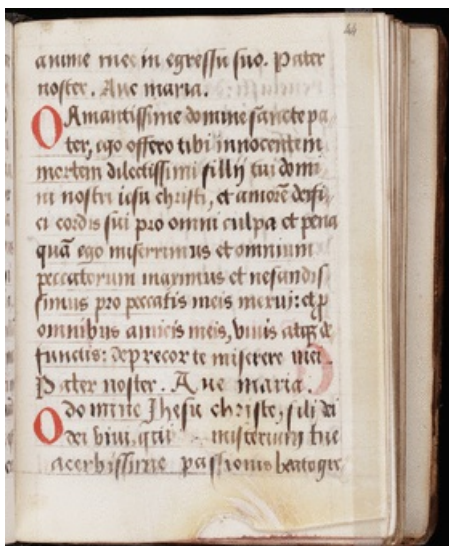 44
anime mee in egressu suo. Pater
noster. Ave maria.
O Amantissime domine sancte pa
ter, ego offero tibi innocentem
mortem dilectissimi filij tui domi
ni nostri iesu christi, et amorē deifi
ci cordis sui pro omni culpa et pena
quā ego miserrimus et omnium
peccatorum maximus et nefandis
simus pro peccatis meis merui: et p
omnibus amicis meis, vivis atqz de
functis: deprecor te miserere mei.
Pater noster. Ave maria.
O domine Jhesu christe, fili dei
dei vivi, qui misterium tue
acerbissime passionis beatogir